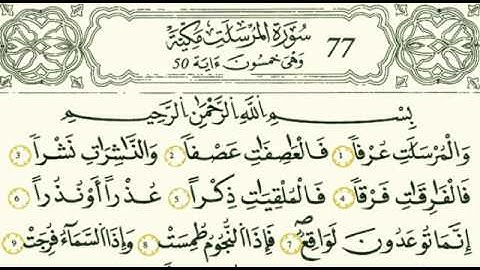 سُورَةُ المُرْسَلَتِ مَكِّيَّة
77
وَهِيَ خَمْسُونَ ءَايَة 50
بِسْمِ اللَّهِ الرَّحْمَٰنِ الرَّحِيمِ
وَالْمُرْسَلَتِ عُرْفاً 1 فَالْعَٰصِفَٰتِ عَصْفاً 2 وَالنَّٰشِرَٰتِ نَشْراً 3
فَالْفَٰرِقَٰتِ فَرْقاً 4 فَالْمُلْقِيَٰتِ ذِكْراً 5 عُذْراً أَوْ نُذُراً 6
إِنَّمَا تُوعَدُونَ لَوَاقِعٌ 7 فَإِذَا النُّجُومُ طُمِسَتْ 8 وَإِذَا السَّمَآءُ فُرِجَتْ 9